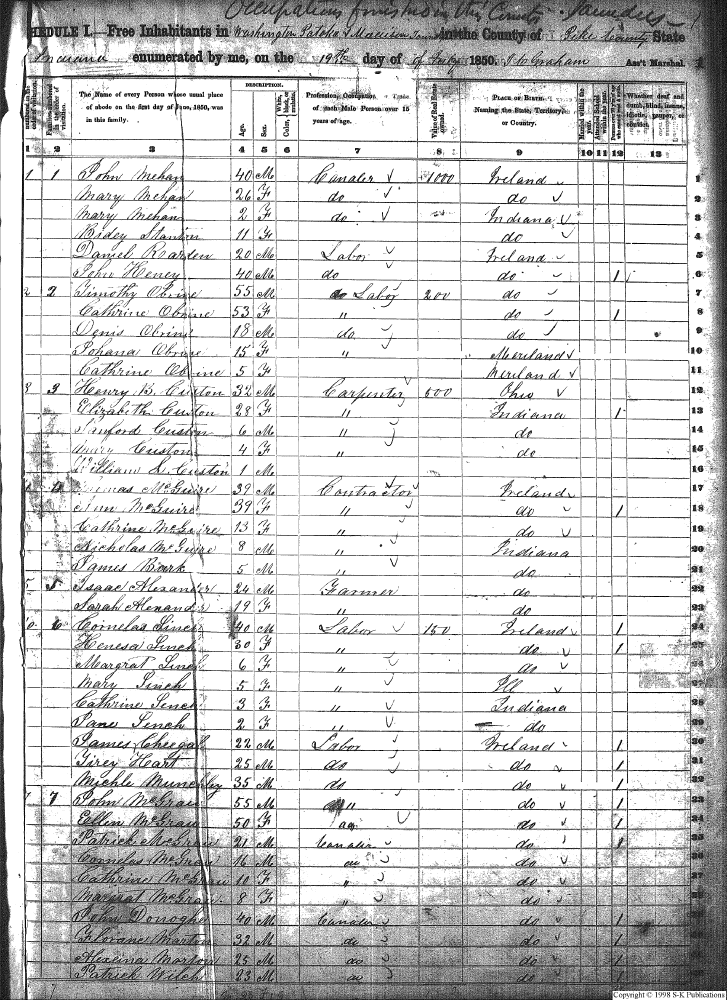 Occupations finished in this County
HEDULE I.—Free Inhabitants in Washington Patoka & Madison in the County of Pike County State
Indiana enumerated by me, on the 19th day of July 1850. Graham Ass't Marshal.
The Name of every Person whose usual place of abode on the first day of June, 1850, was in this family.
DESCRIPTION.
Age. Sex. Color,
Profession, Occupation, or Trade of each Male Person over 15 years of age.
Value of Real Estate owned.
PLACE OF BIRTH. Naming the State, Territory, or Country.
Married within the year.
Attended School within the year.
Whether deaf and dumb, blind, insane, idiotic, pauper, or convict.
1 2 3 4 5 6 7 8 9 10 11 12 13
1 1 John Mehan 40 M Canaler 1000 Ireland 1
Mary Mehan 26 F do do 2
Mary Mehan 2 F do Indiana 3
Bidey Stanton 11 F do 4
Daniel Rearden 20 M Labor Ireland 5
John Heney 40 M do do 1 6
2 2 Timothy Obrine 55 M Labor 200 do 7
Cathrine Obrine 53 F " do 1 8
Denis Obrine 18 M do do 9
Johana Obrine 15 F " Meriland 10
Cathrine Obrine 5 F Meriland 11
3 3 Henry B. Custon 32 M Carpenter 500 Ohio 12
Elizabeth Custon 28 F " Indiana 1 13
Sinford Custon 6 M " do 14
Custon 4 F " do 15
William D. Custon 1 M 16
4 Thomas McGuire 39 M Contractor Ireland 17
Ann McGuire 39 F " do 1 18
Cathrine McGuire 13 F " do 19
Nicholas McGuire 8 M " Indiana 20
James Bark 5 M " do 21
5 5 Isaac Alexander 24 M Farmer do 22
Sarah Alexander 19 F " do 23
6 6 Cornelas Linch 40 M Labor 150 Ireland 1 24
Henesa Linch 30 F " do 1 25
Margrat Linch 6 F " do
Mary Linch 5 F " Ill
Cathrine Linch 3 F " Indiana 28
Jane Linch 2 F " do 29
James Cheegal 22 M Labor Ireland 1 30
Firey Hart 25 M do do 1
Michle Munchley 35 M do do 1
7 7 John McGraw 55 M " do 1
Ellen McGraw 50 F do do 1
Patrick McGraw 21 M Canaler do 1
Cornelas McGraw 16 M do do
Cathrine McGraw 10 F " do
Margrat McGraw 8 F " do
John Donoghe 40 M Canaler do 1
Florane Marton 32 M do do 1
Marton 25 M do do 1
Patrick Wilch 23 M do do 1
Copyright © 1998 S-K Publications